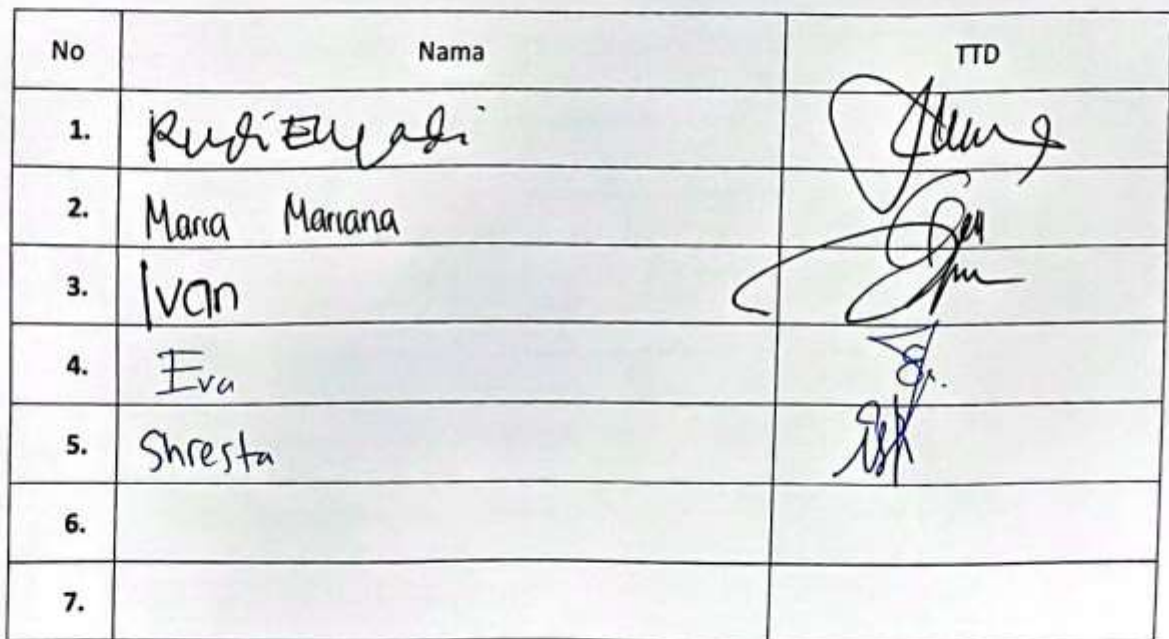 No Nama TTD
1. Rudi
2. Maria Mariana
3. Ivan
4. Eva
5. Shresta
6.
7.